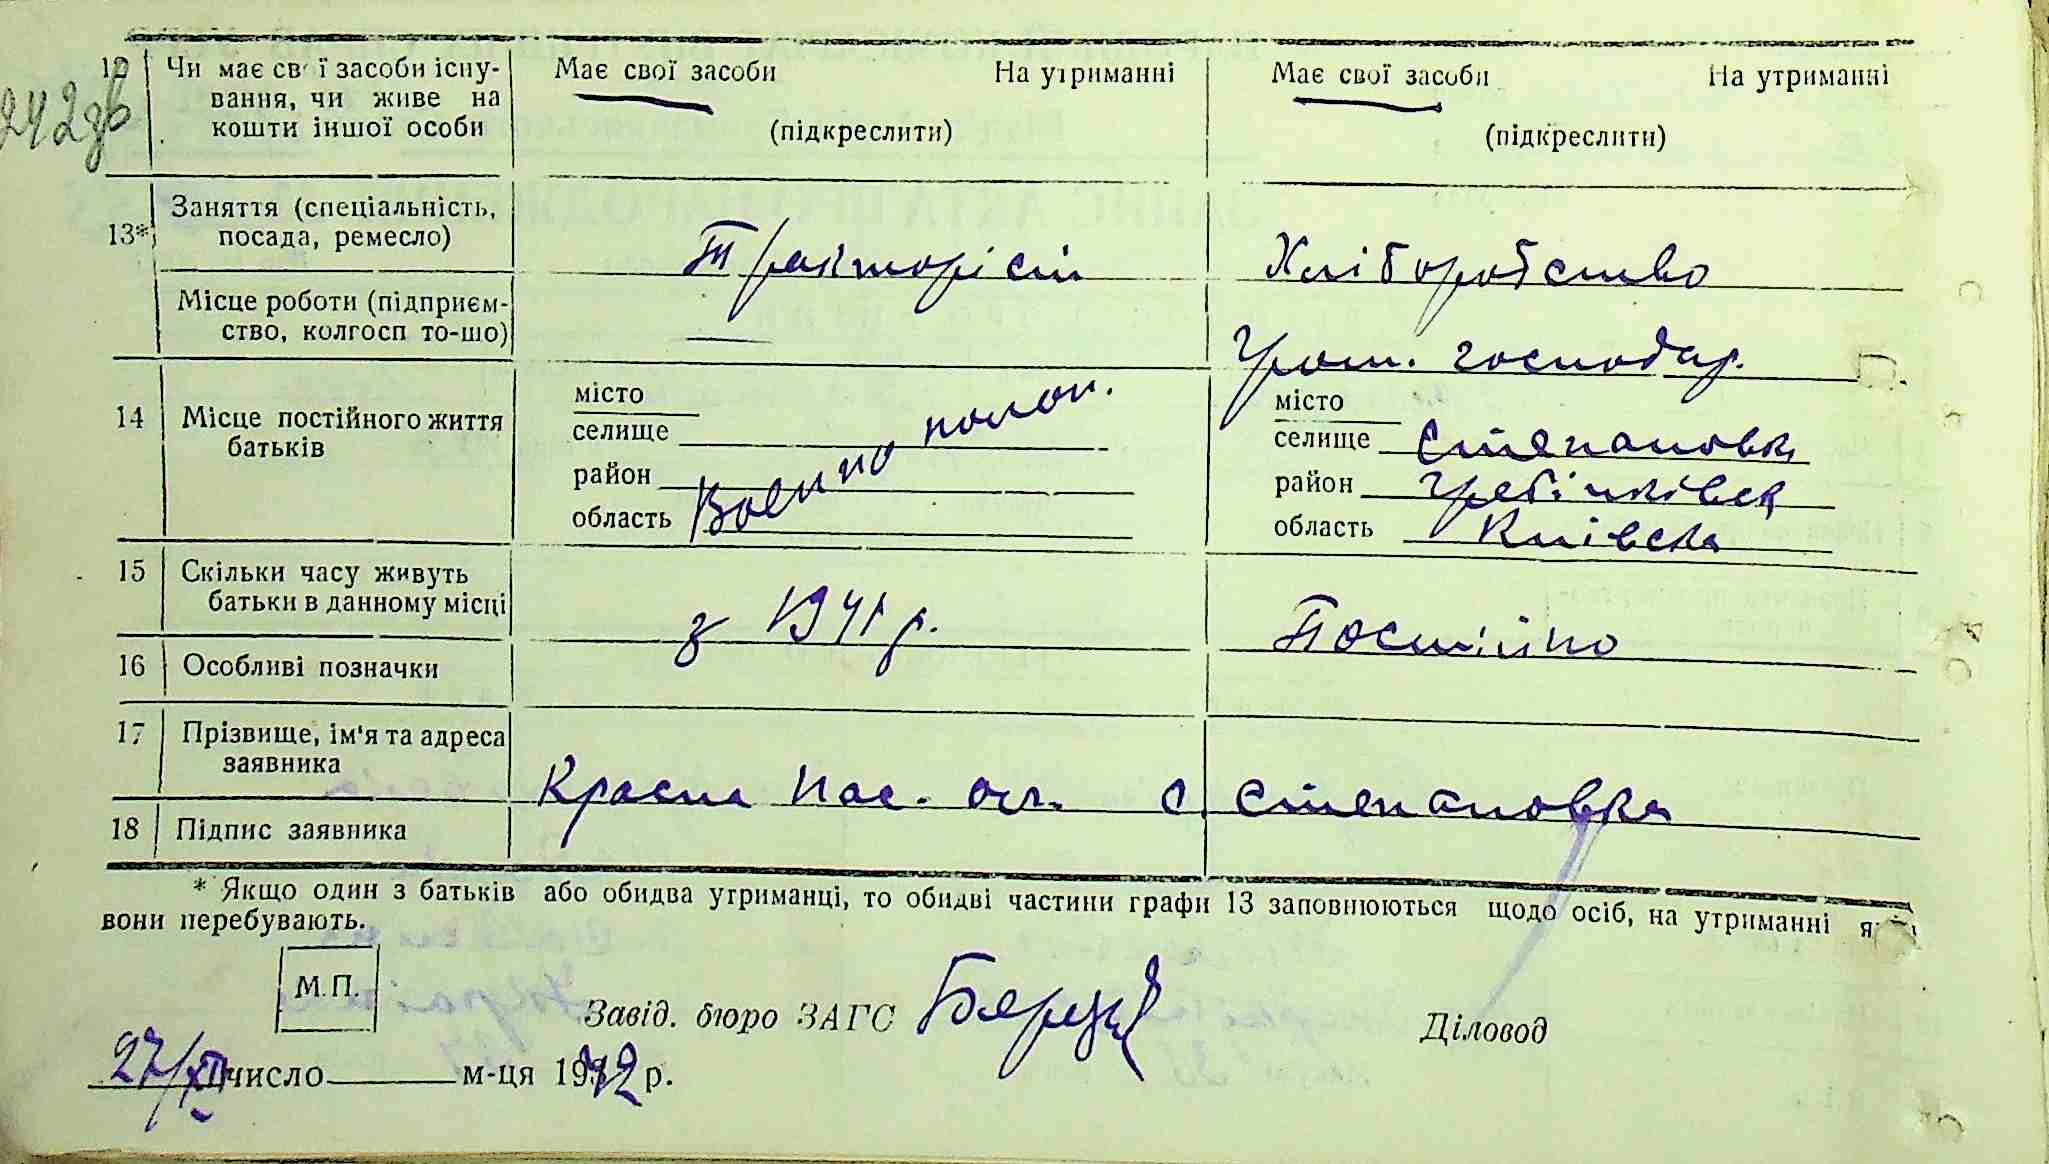 242зв
12 Чи має свої засоби існу- Має свої засоби На утриманні Має свої засоби На утриманні
вання, чи живе на
кошти іншої особи (підкреслити) (підкреслити)
13* Заняття (спеціальність,
посада, ремесло) Тракторіст Хліборобство
Місце роботи (підприєм-
ство, колгосп то-що) — Гром. господар.
14 Місце постійного життя
батьків
місто
селище
район
область
Воєнно полон.
місто
селище Степановка
район Гребінківск
область Київска
15 Скільки часу живуть
батьки в данному місці з 1941 р. Постійно
16 Особливі позначки
17 Прізвище, ім'я та адреса
заявника Красна Нас. с. Степановка
18 Підпис заявника
* Якщо один з батьків або обидва утриманці, то обидві частини графи 13 заповнюються щодо осіб, на утриманні я
вони перебувають.
М.П.
Завід. бюро ЗАГС Діловод
27/XII число м-ця 1942 р.